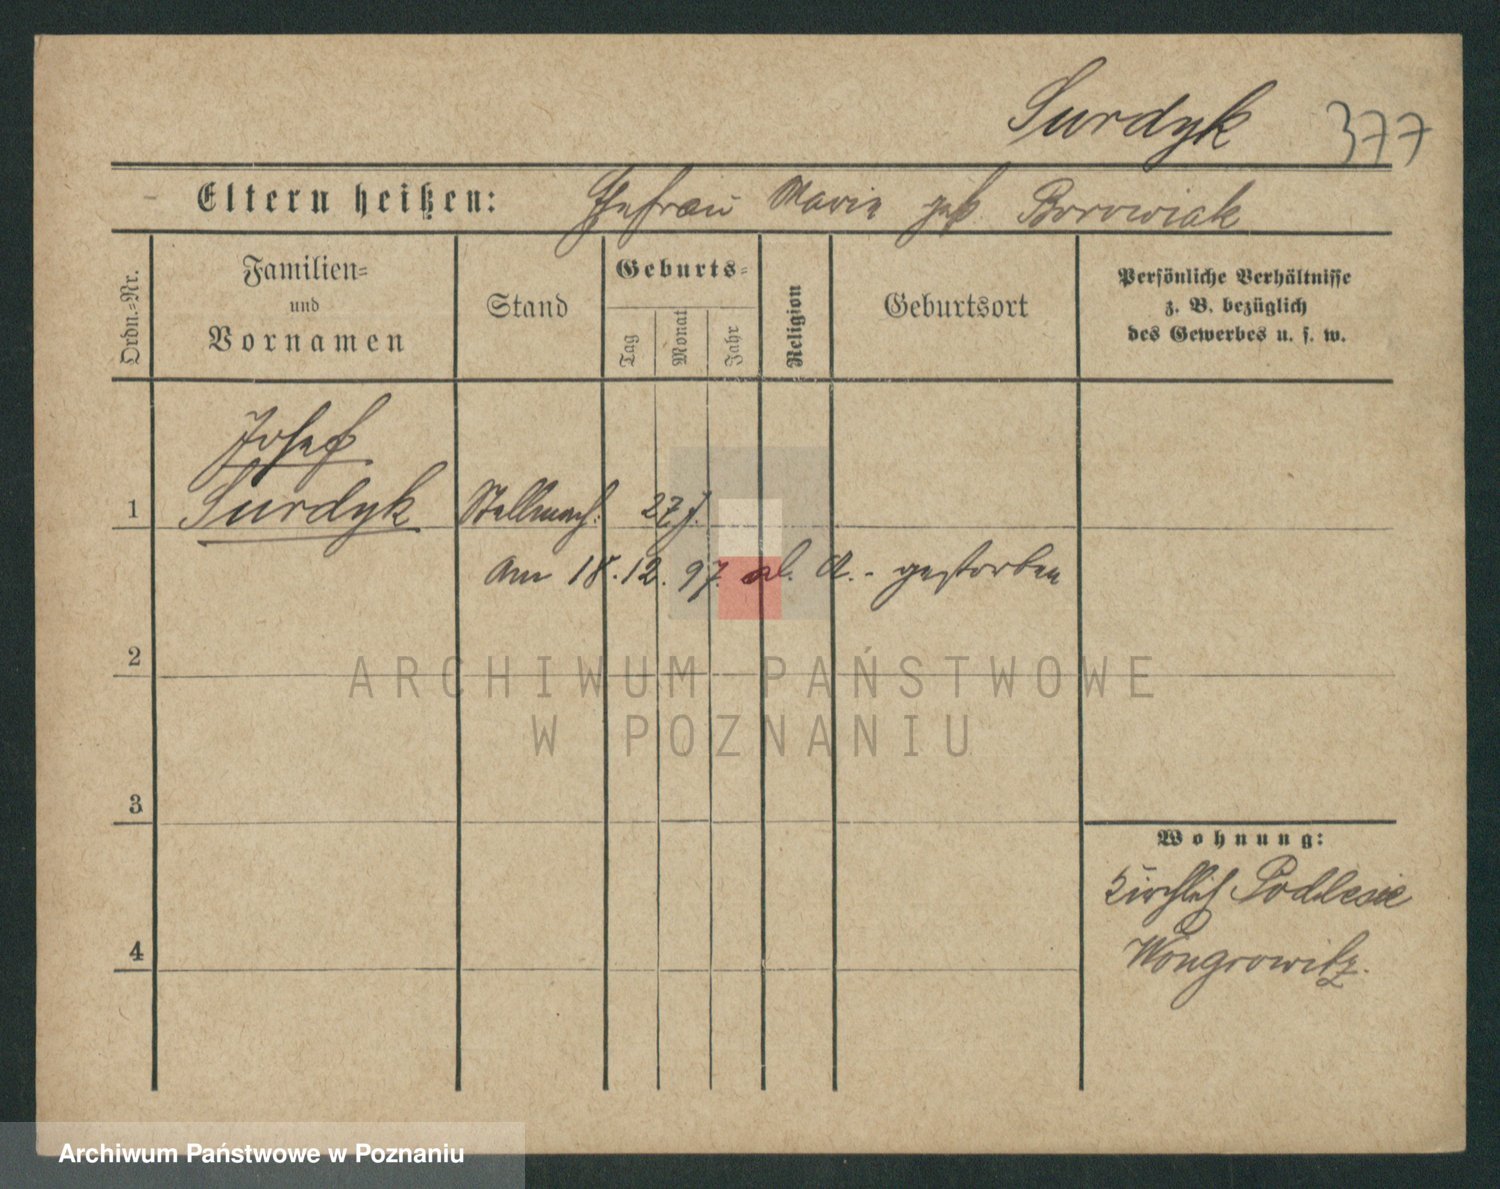 Surdyk 377
Eltern heißen: Ehefrau Marie geb. Borowiak
Ordn.=Nr.
Familien=
und
Vornamen
Stand
Geburts=
Tag
Monat
Jahr
Religion
Geburtsort
Persönliche Verhältnisse
z. B. bezüglich
des Gewerbes u. s. w.
Josef
1 Surdyk Stellmach. 27 J.
am 18.12.97. al. A. - gestorben
2
ARCHIWUM PAŃSTWOWE
W POZNANIU
3
Wohnung:
Kirchlich Podlesie
4
Wongrowitz.
Archiwum Państwowe w Poznaniu